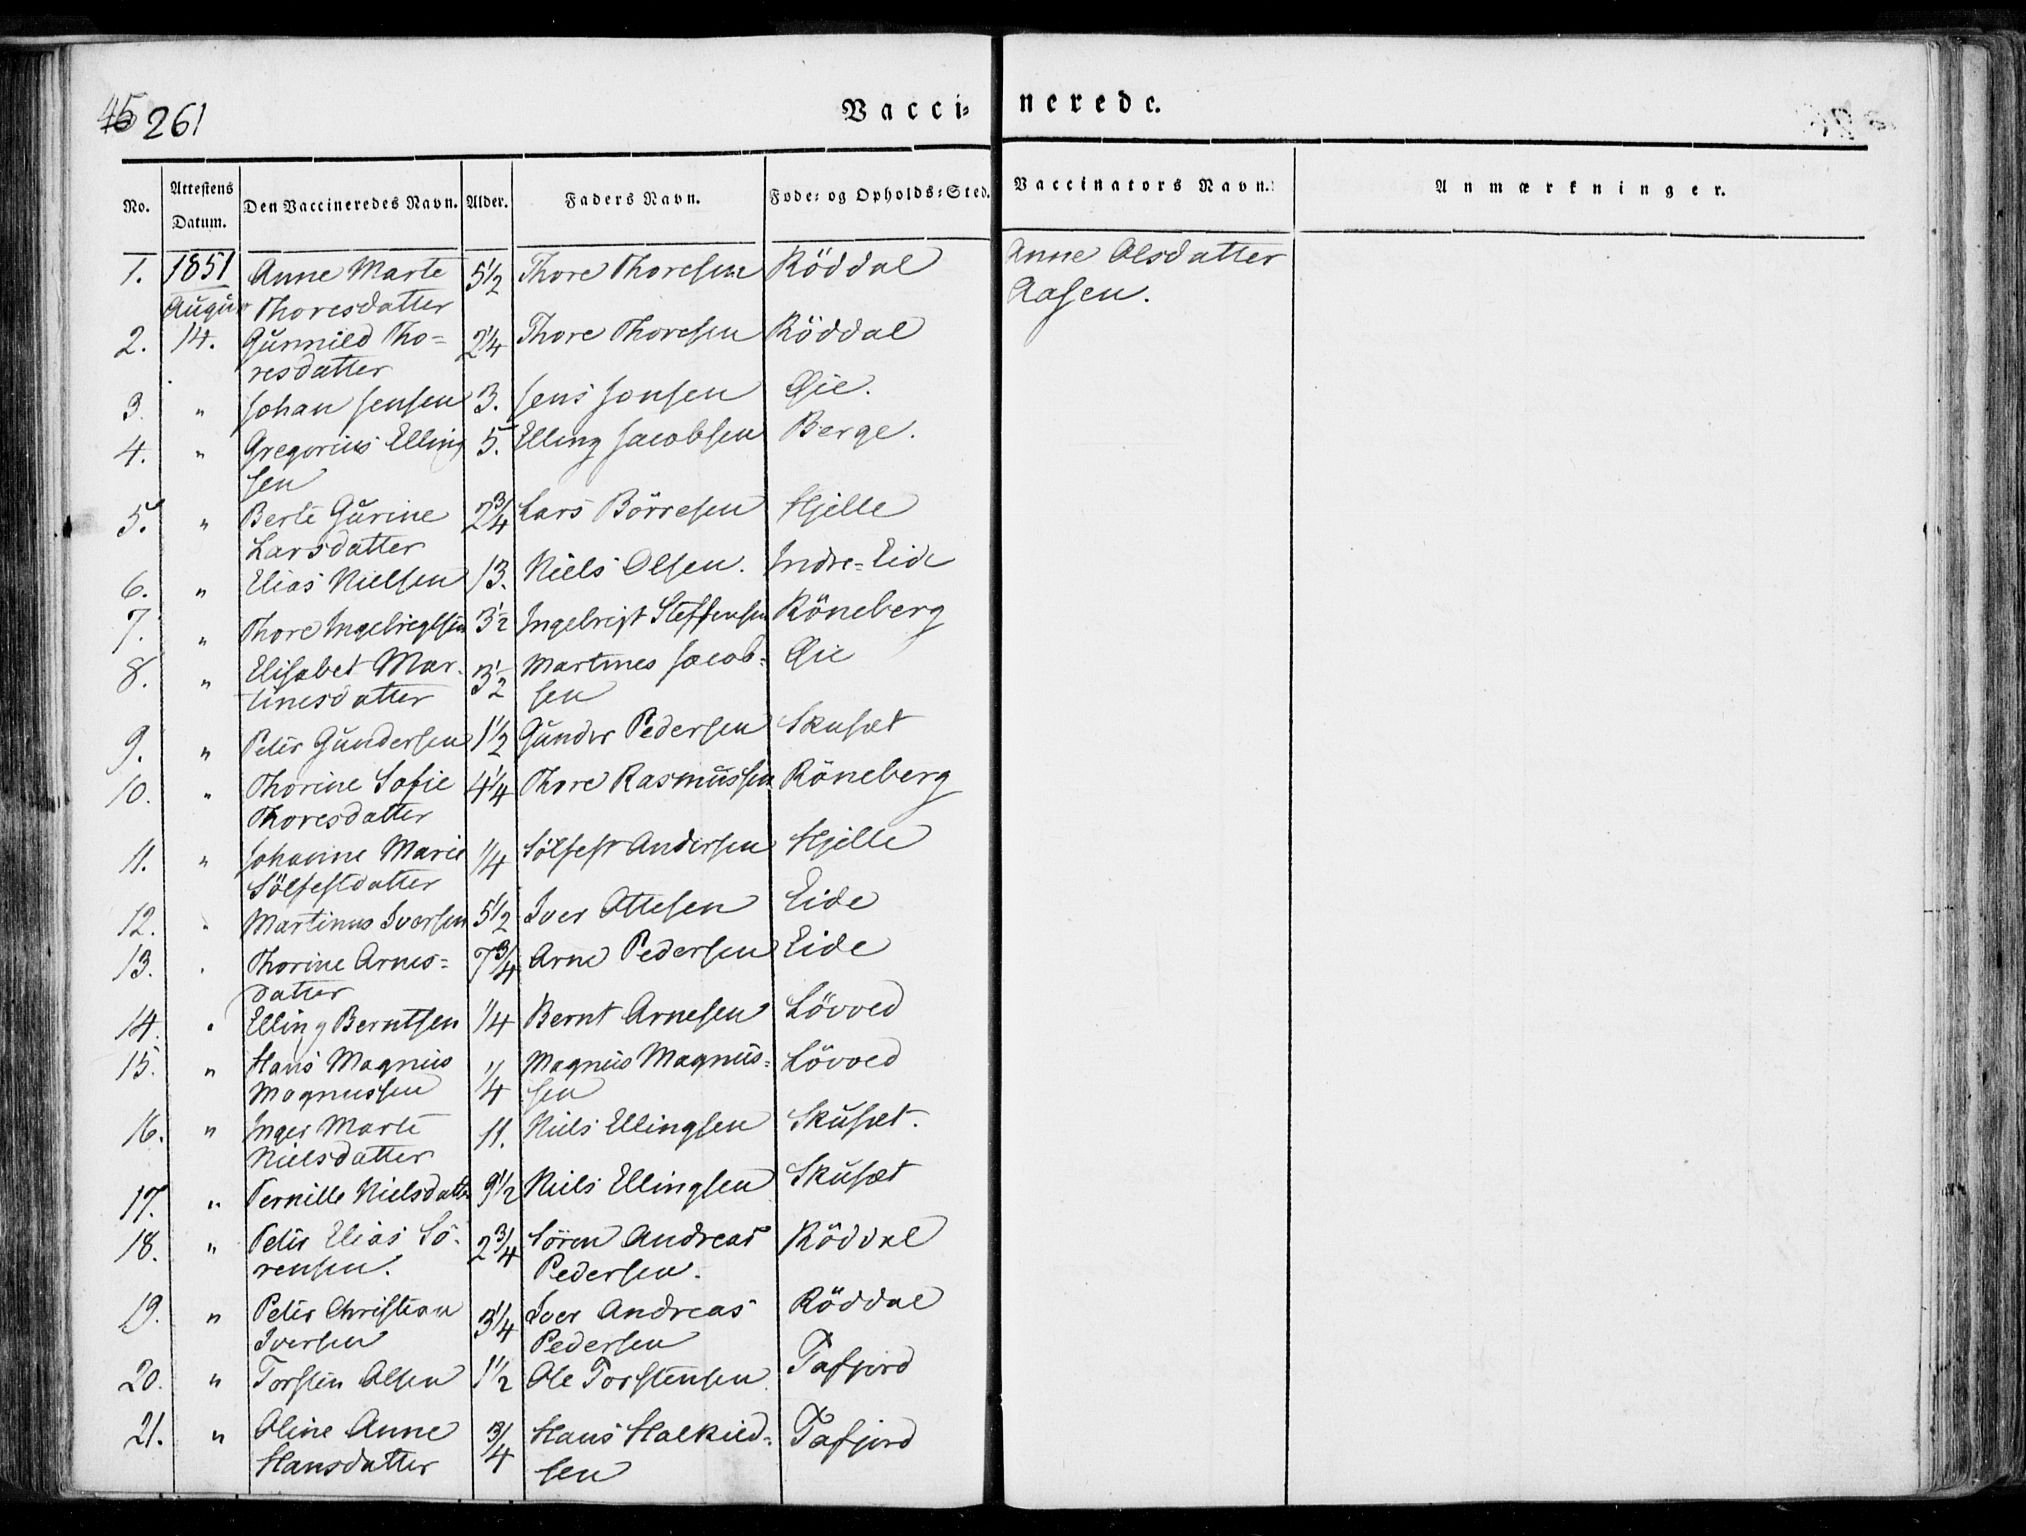 45 261
Vaccinerede.
No. Attestens Datum. Den Vaccineredes Navn. Alder. Faders Navn. Føde- og Opholds-Sted. Vaccinators Navn. Anmærkninger.
1. 1851 Anne Marte 5½ Thore Thoresen Röddal Anne Olsdatter
August Thoresdatter Aasen.
2. 14. Gunnild Tho- 2¼ Thore Thoresen Röddal
resdatter
3. " Johan Jensen 3. Jens Jonsen Øie.
4. " Gregorius Elling 5. Elling Jacobsen Berge.
sen
5. " Berte Gurine 2¾ Lars Börresen Hjelle
Larsdatter
6. " Elias Nielsen 13. Niels Olsen. Indre-Eide
7. " Thore Ingebrigtsen 3½ Ingebrigt Steffensen Röneberg
8. " Elisabet Mar- 3½ Martines Jacob- Øie
tinesdatter sen
9. " Peter Gundersen 1½ Gunder Pedersen Skusæt
10. " Thorine Sofie 4¼ Thore Rasmussen Röneberg
Thoresdatter
11. " Johanne Marie ¼ Sölfest Andersen Hjelle
Sölfestdatter
12. " Martinus Iversen 5½ Iver Ottesen Eide
13. " Thorine Arnes- 7¾ Arne Pedersen Eide
datter
14. " Elling Berntsen ¼ Bernt Arnesen Lövoed
15. " Hans Magnus ¼ Magnus Magnus- Lövoed
Magnussen sen
16. " Inger Marte 11. Niels Ellingsen Skusæt.
Nielsdatter
17. " Pernille Nielsdatter 9½ Niels Ellingsen Skusæt
18. " Peter Elias Sö- 2¾ Sören Andreas Röddal
rensen. Pedersen.
19. " Peter Christian 3¼ Iver Andreas Röddal
Iversen Pedersen
20. " Torsten Olsen 1½ Ole Torstensen Tafjord
21. " Oline Anne ¾ Hans Halkild- Tafjord
Hansdatter sen